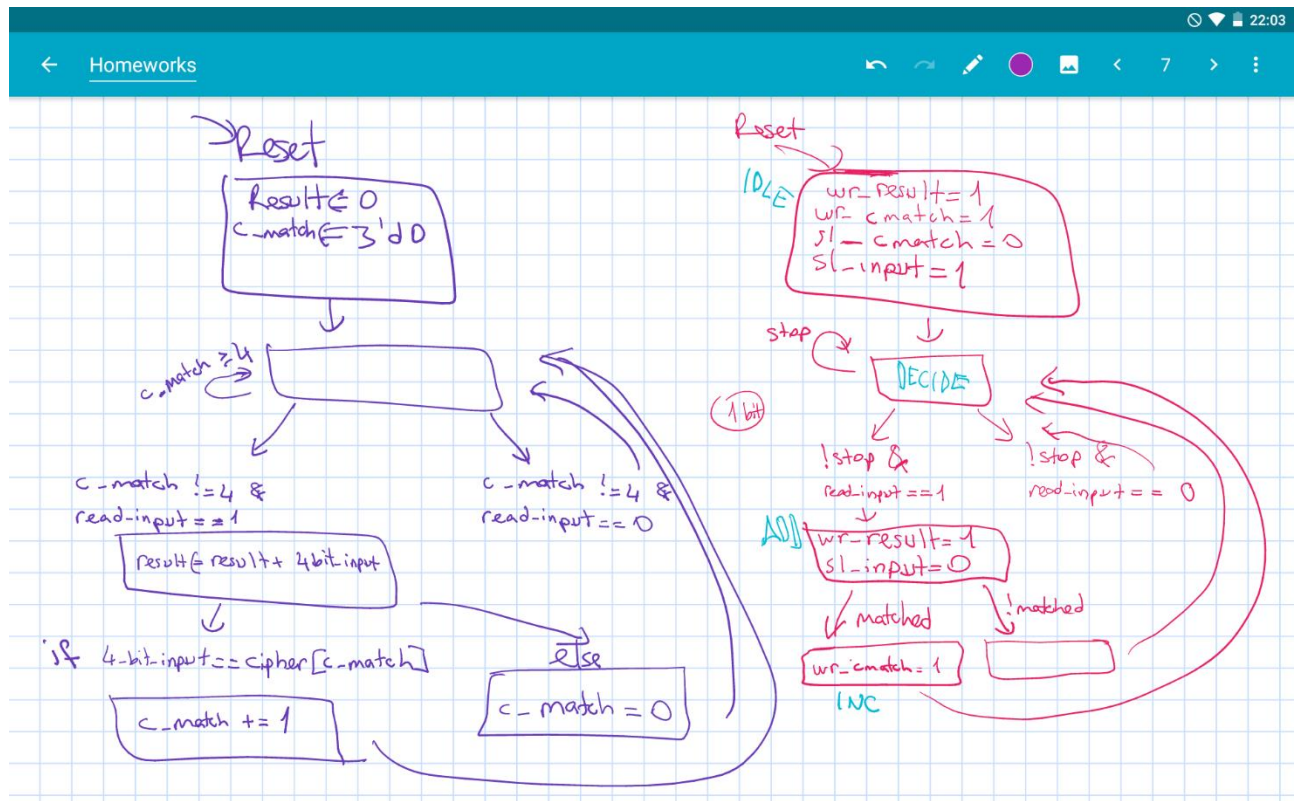 22:03
Homeworks
7
Reset
Result ⇐ 0
c_match ⇐ 3'd0
c_match ≥ 4
c_match != 4 &
read_input == 1
c_match != 4 &
read_input == 0
result ⇐ result + 4bit_input
if 4-bit_input == cipher[c_match]
else
c_match += 1
c_match = 0
Reset
IDLE
wr_result = 1
wr_cmatch = 1
sl_cmatch = 0
sl_input = 1
stop
DECIDE
1 bit
!stop &
read_input == 1
!stop &
read_input == 0
ADD
wr_result = 1
sl_input = 0
matched
!matched
wr_cmatch = 1
INC